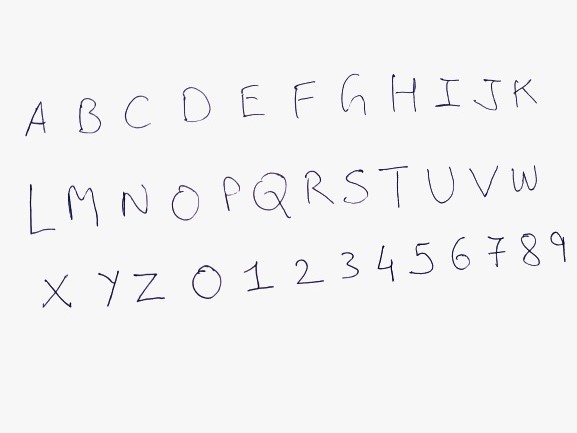 A B C D E F G H I J K
L M N O P Q R S T U V W
X Y Z 0 1 2 3 4 5 6 7 8 9